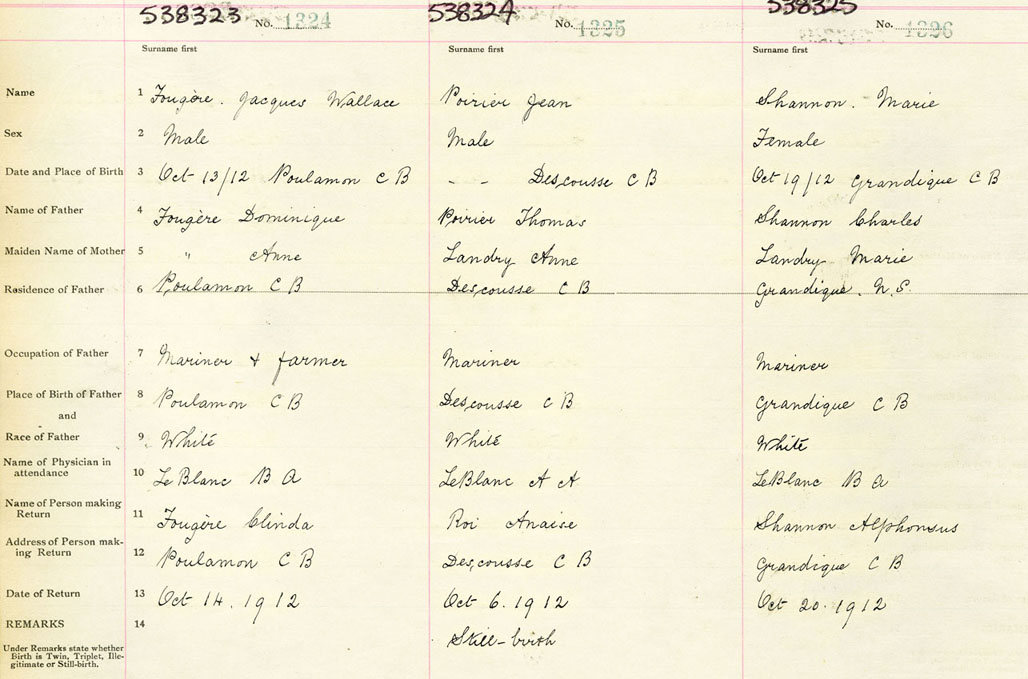 538323 No. 1324 538324 No. 1325 538325 No. 1326
Surname first Surname first Surname first
Name 1 Fougère. Jacques Wallace Poirier Jean Shannon. Marie
Sex 2 Male Male Female
Date and Place of Birth 3 Oct 13/12 Poulamon C B - - Descousse C B Oct 19/12 Grandique C B
Name of Father 4 Fougère Dominique Poirier Thomas Shannon Charles
Maiden Name of Mother 5 " Anne Landry Anne Landry Marie
Residence of Father 6 Poulamon C B Descousse C B Grandique. N.S.
Occupation of Father 7 Mariner + farmer Mariner Mariner
Place of Birth of Father 8 Poulamon C B Descousse C B Grandique C B
and
Race of Father 9 White White White
Name of Physician in
attendance 10 LeBlanc B A LeBlanc A A LeBlanc B A
Name of Person making
Return 11 Fougère Clinda Roi Anaise Shannon Alphonsus
Address of Person mak-
ing Return 12 Poulamon C B Descousse C B Grandique C B
Date of Return 13 Oct 14. 1912 Oct 6. 1912 Oct 20. 1912
REMARKS 14 Still-birth
Under Remarks state whether
Birth is Twin, Triplet, Ille-
gitimate or Still-birth.